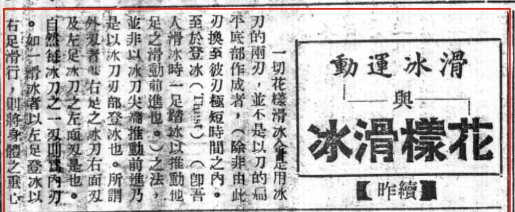 滑冰運動
與
花樣滑冰
【續昨】
一切花樣滑冰全是用冰
刀的兩刃，並不是以刀的扁
平底部作成者，（除非由此
刃換至彼刃極短時間之內。
至於登冰（Thrust）（即吾
人滑冰時一足踏冰以推動他
足之滑動前進也。）之法，
並非以冰刀尖端推動前進乃
是以冰刀刃部登冰也。所謂
外刃者右足之冰刀右面刃
及左足冰刀之左面刃是也。
自然每冰刀之一刃則爲內刃
。如一滑冰者以左足登冰以
右足滑行，則將身體之重心